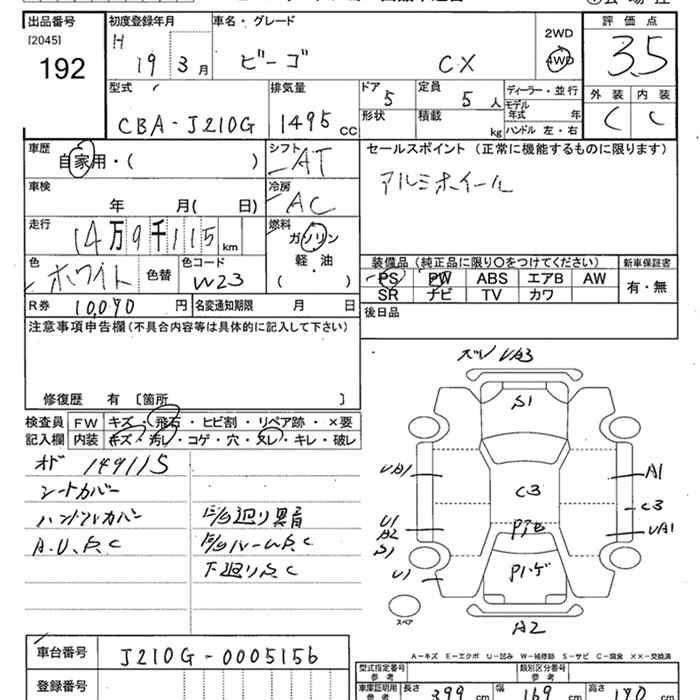 出品番号
[2045]
192
初度登録年月
H 19 3月
車名・グレード
ビーゴ CX
2WD
4WD
評価点
3.5
外装 内装
C C
型式
CBA-J210G
排気量
1495 CC
ドア
5
形状
定員
5人
積載
kg
ディーラー・並行
モデル年式 年
ハンドル 左・右
車歴
自家用・( )
シフト
AT
セールスポイント (正常に機能するものに限ります)
アルミホイール
車検
年 月( 日)
冷房
AC
走行
14万9千115km
燃料
ガソリン
軽・油
( )
色
ホワイト 色替
色コード
W23
装備品(純正品に限り○をつけてください)
PS PW ABS エアB AW
SR ナビ TV カワ
新車保証書
有・無
R券 10,070円
名変通知期限 月 日
後日品
注意事項申告欄(不具合内容等は具体的に記入して下さい)
修復歴 有 [箇所 ]
検査員記入欄
FW キズ・飛石・ヒビ割・リペア跡・×要
内装 キズ・汚レ・コゲ・穴・スレ・キレ・破レ
メド 149115
シートカバー
ハンドルカバー
A.U.P.C
下廻りP.C
ズレ UA3
S1
UA1
A1
C3
C3
U1
A2
S1
UA1
U1
スペア
A2
A-キズ E-エクボ U-凹み W-補修跡 S-サビ C-腐食 ××-交換済
車台番号 J210G-0005156
登録番号
型式指定番号 参考
類別区分番号 参考
車庫証明用 参考 長さ 399cm 幅 169cm 高さ 170cm